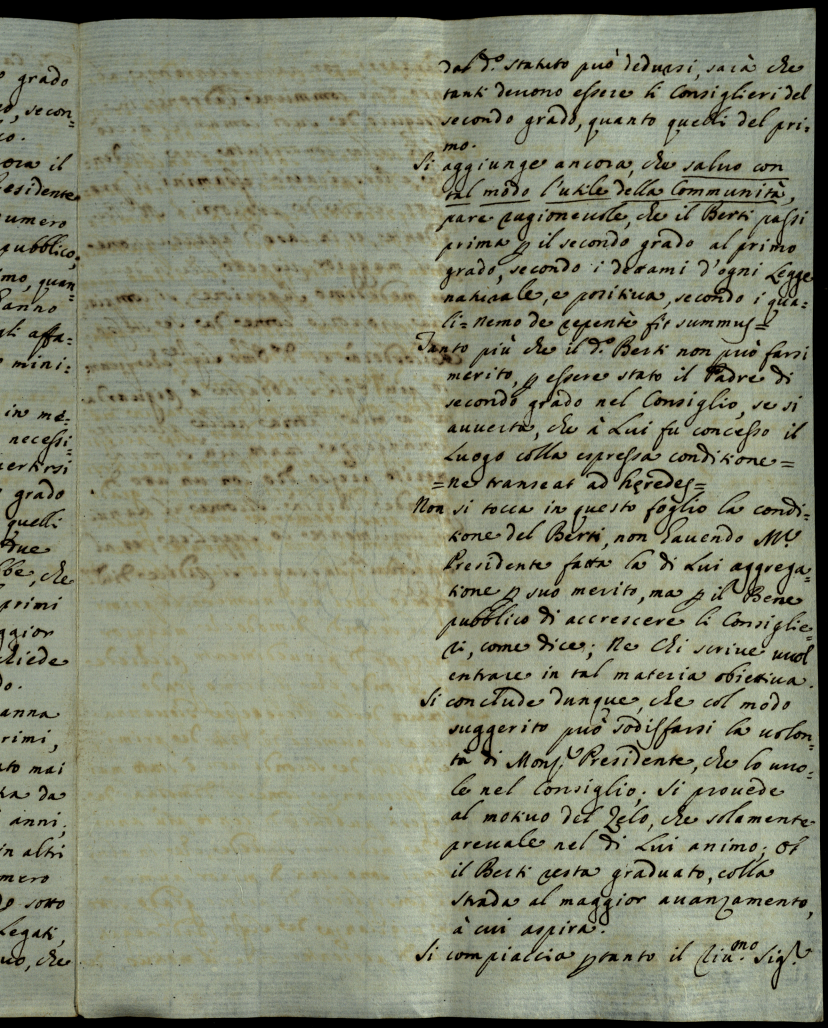 o grado
o, secon=
co.
ora il
residente
umero
pubblico;
imo, quan=
hanno
gli affa=
o mini=
in me=
necessi=
vertirsi
grado
quelli
due
bbe, che
primi
ggior
chiede
do.
anna
rimi,
ato mai
da
anni;
in altri
mero
do sotto
Legati,
uo, che
dal d.º statuto può dedursi, sarà che
tanti devono essere li Consiglieri del
secondo grado, quanto quelli del pri=
mo.
Si aggiunge ancora, che salvo con
tal modo l'utile della Communità,
pare ragionevole, che il Berti passi
prima p il secondo grado al primo
grado, secondo i dettami d'ogni Legge
naturale, e positiva, secondo i qua=
li= Nemo de repentè fit summus=
Tanto più che il d.º Berti non può farsi
merito, p essere stato il Padre di
secondo grado nel Consiglio, se si
avverta, che à Lui fu concesso il
Luogo colla espressa conditione=
=ne transeat ad hęredes=
Non si tocca in questo foglio la condi=
tione del Berti, non havendo Mr.
Presidente fatta la di Lui aggrega=
tione p suo merito, ma p il Bene
pubblico di accrescere li Consiglie=
ri, come dice; Ne Chi scrive vuol
entrare in tal materia obiettiva.
Si conclude dunque, che col modo
suggerito può sodisfarsi la volon=
tà di Monsr. Presidente, che lo vuo=
le nel Consiglio; Si provede
al motivo del Zelo, che solamente
prevale nel di Lui animo; Et
il Berti resta graduato, colla
strada al maggior avanzamento,
à cui aspira.
Si compiaccia ptanto il Riv.mo Sig.r